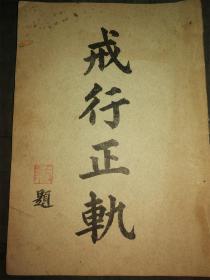 戒行正軌
題